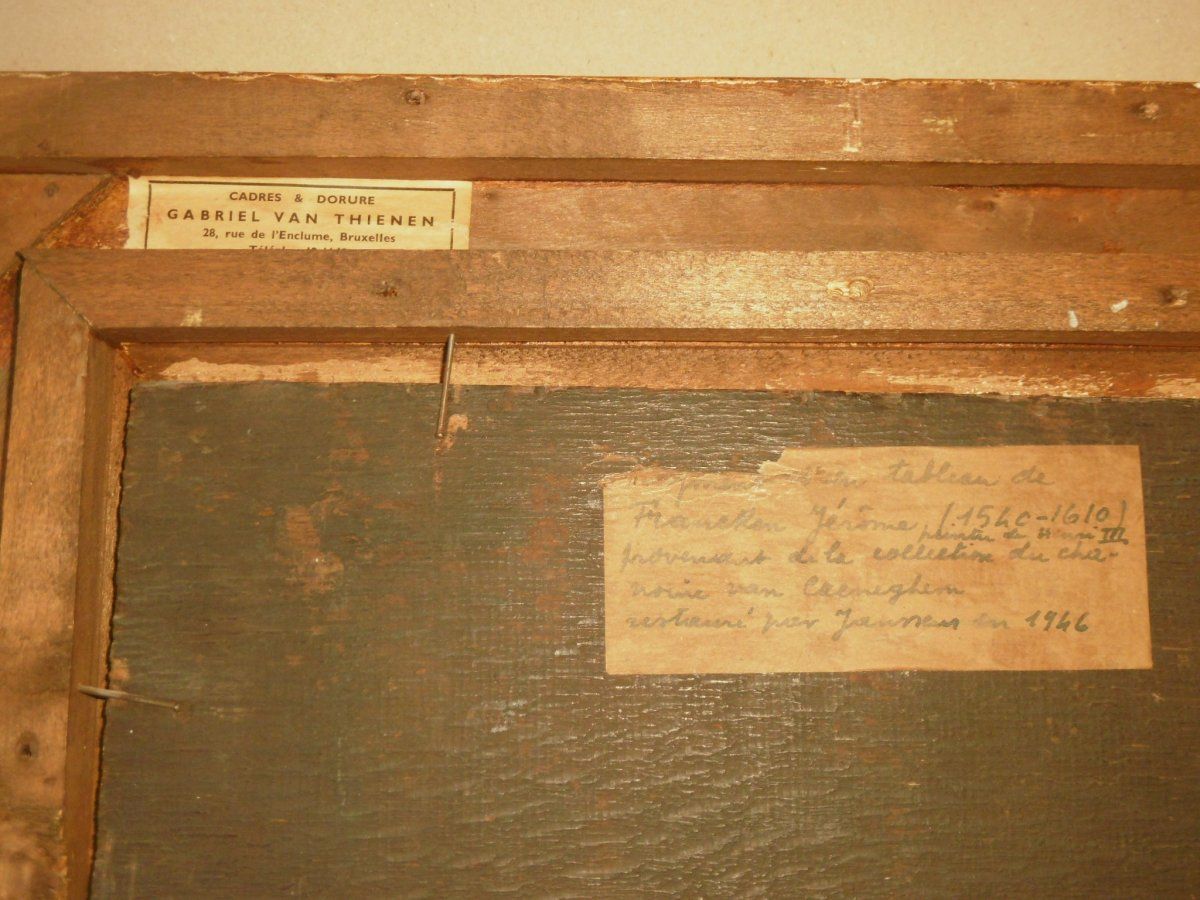 CADRES & DORURE
GABRIEL VAN THIENEN
28, rue de l'Enclume, Bruxelles
d'un tableau de
Francken Jérôme (1540-1610)
peintre de Henri III
provenant de la collection du cha-
noine van Caeneghem
restauré par Janssens en 1946